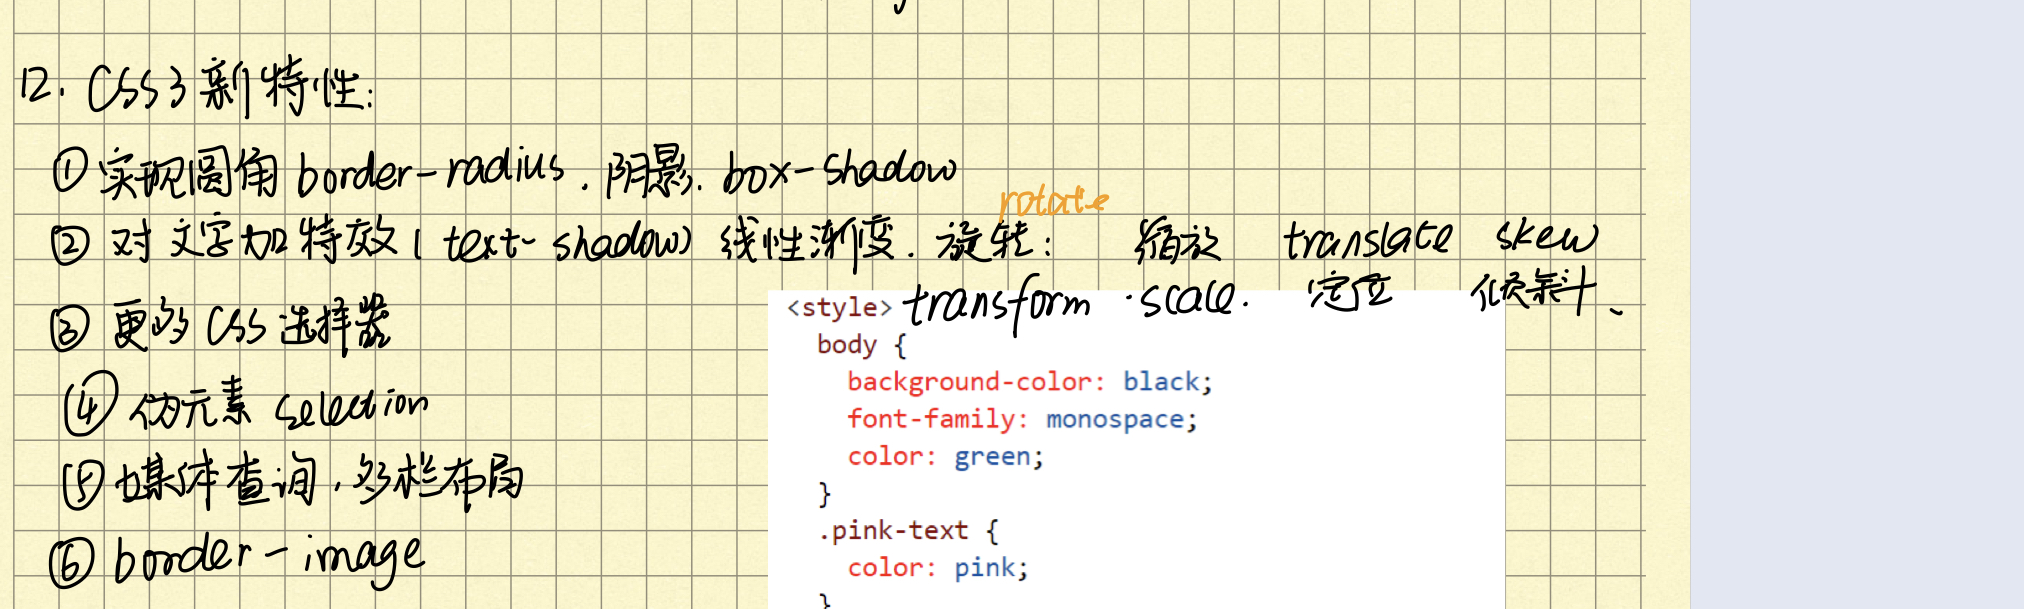 12. CSS3新特性:
① 实现圆角 border-radius. 阴影. box-shadow
rotate
② 对文字加特效 ( text-shadow) 线性渐变. 旋转: 缩放 translate skew
transform .scale. 定位 倾斜.
③ 更多 CSS 选择器
④ 伪元素 selection
⑤ 媒体查询, 多栏布局
⑥ border-image
<style>
body {
background-color: black;
font-family: monospace;
color: green;
}
.pink-text {
color: pink;
}